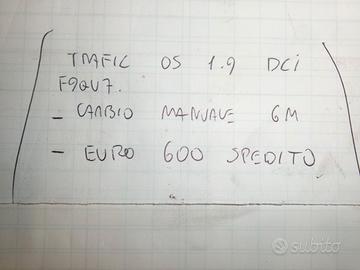 TRAFIC OS 1.9 DCI
F9QU7.
- CAMBIO MANUALE 6M
- EURO 600 SPEDITO
subito